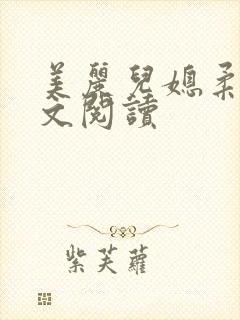 美麗兒媳柔
文閱讀
紫芙蘿